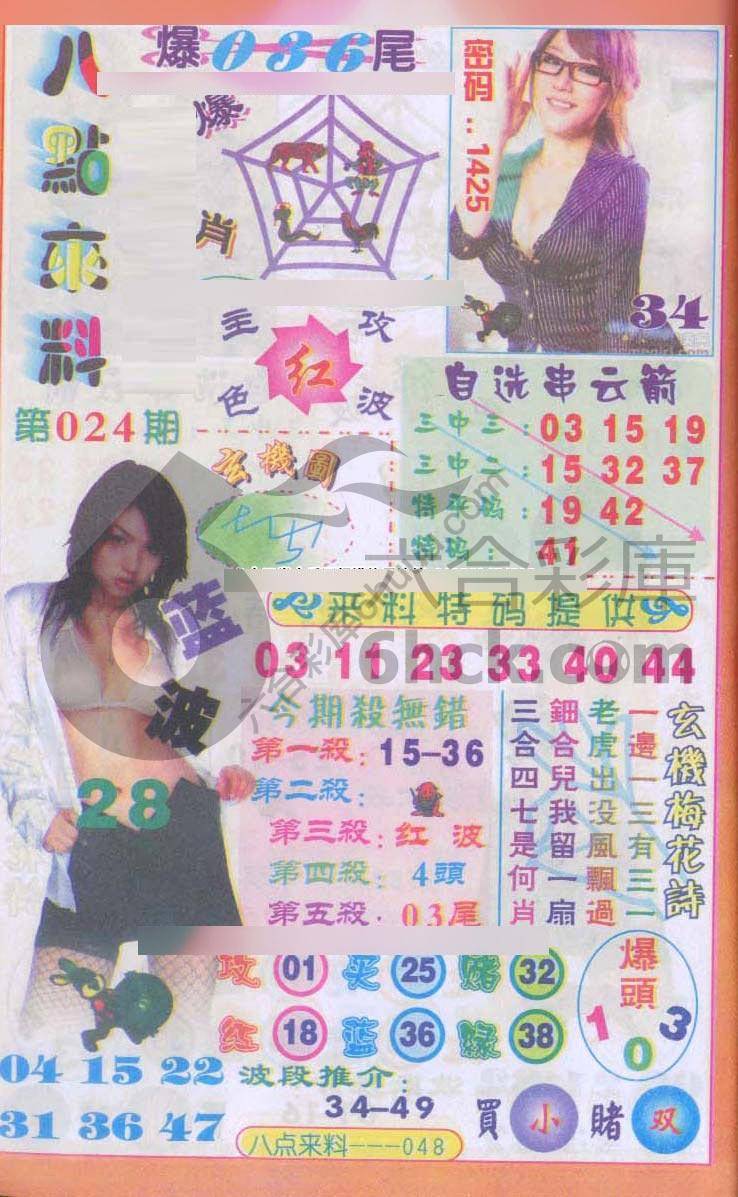 爆036尾
八點來料
爆肖
密码:1425
34
主攻
红
色波
第024期
玄機圖
自选串云箭
三中三:03 15 19
三中二:15 32 37
特平码:19 42
特码:41
蓝波
28
來料特码提供
03 11 23 33 40 44
六合彩庫
6hck.com
今期殺無錯
第一殺:15-36
第二殺:
第三殺:红波
第四殺:4頭
第五殺:03尾
玄機梅花詩
一邊一三有三一
老虎出没風飄過
鈿合兒我留一扇
三合四七是何肖
攻 01 买 25 赌 32
红 18 蓝 36 绿 38
爆頭
1 0 3
04 15 22
31 36 47
波段推介:
34-49
買小賭双
八点来料---048